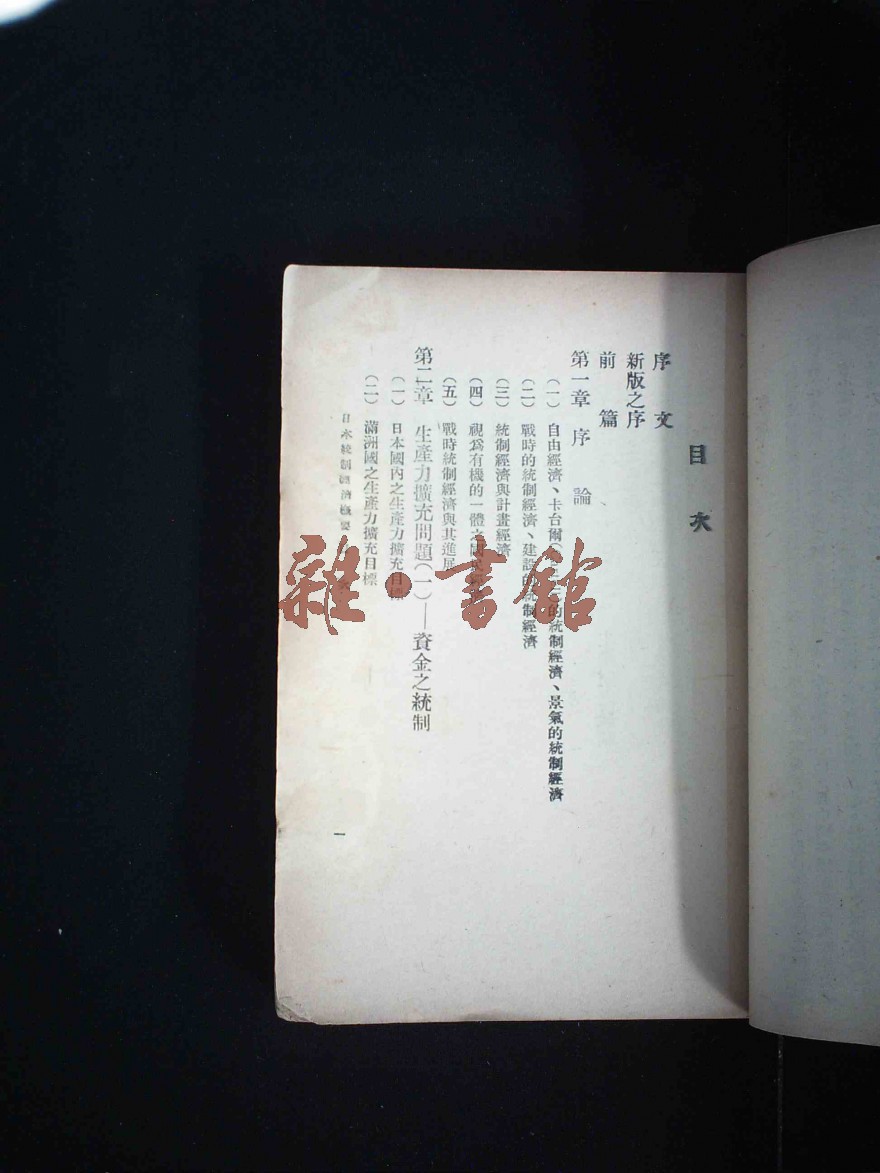 目次
序文
新版之序
前篇
第一章 序論
(一) 自由經濟、卡台爾的統制經濟、景氣的統制經濟
(二) 戰時的統制經濟、建設的統制經濟
(三) 統制經濟與計畫經濟
(四) 視爲有機的一體之國民經
(五) 戰時統制經濟與其進展
第二章 生產力擴充問題(一)——資金之統制
(一) 日本國內之生產力擴充目標
(二) 滿洲國之生產力擴充目標
日本統制經濟概要
一
雜·書館